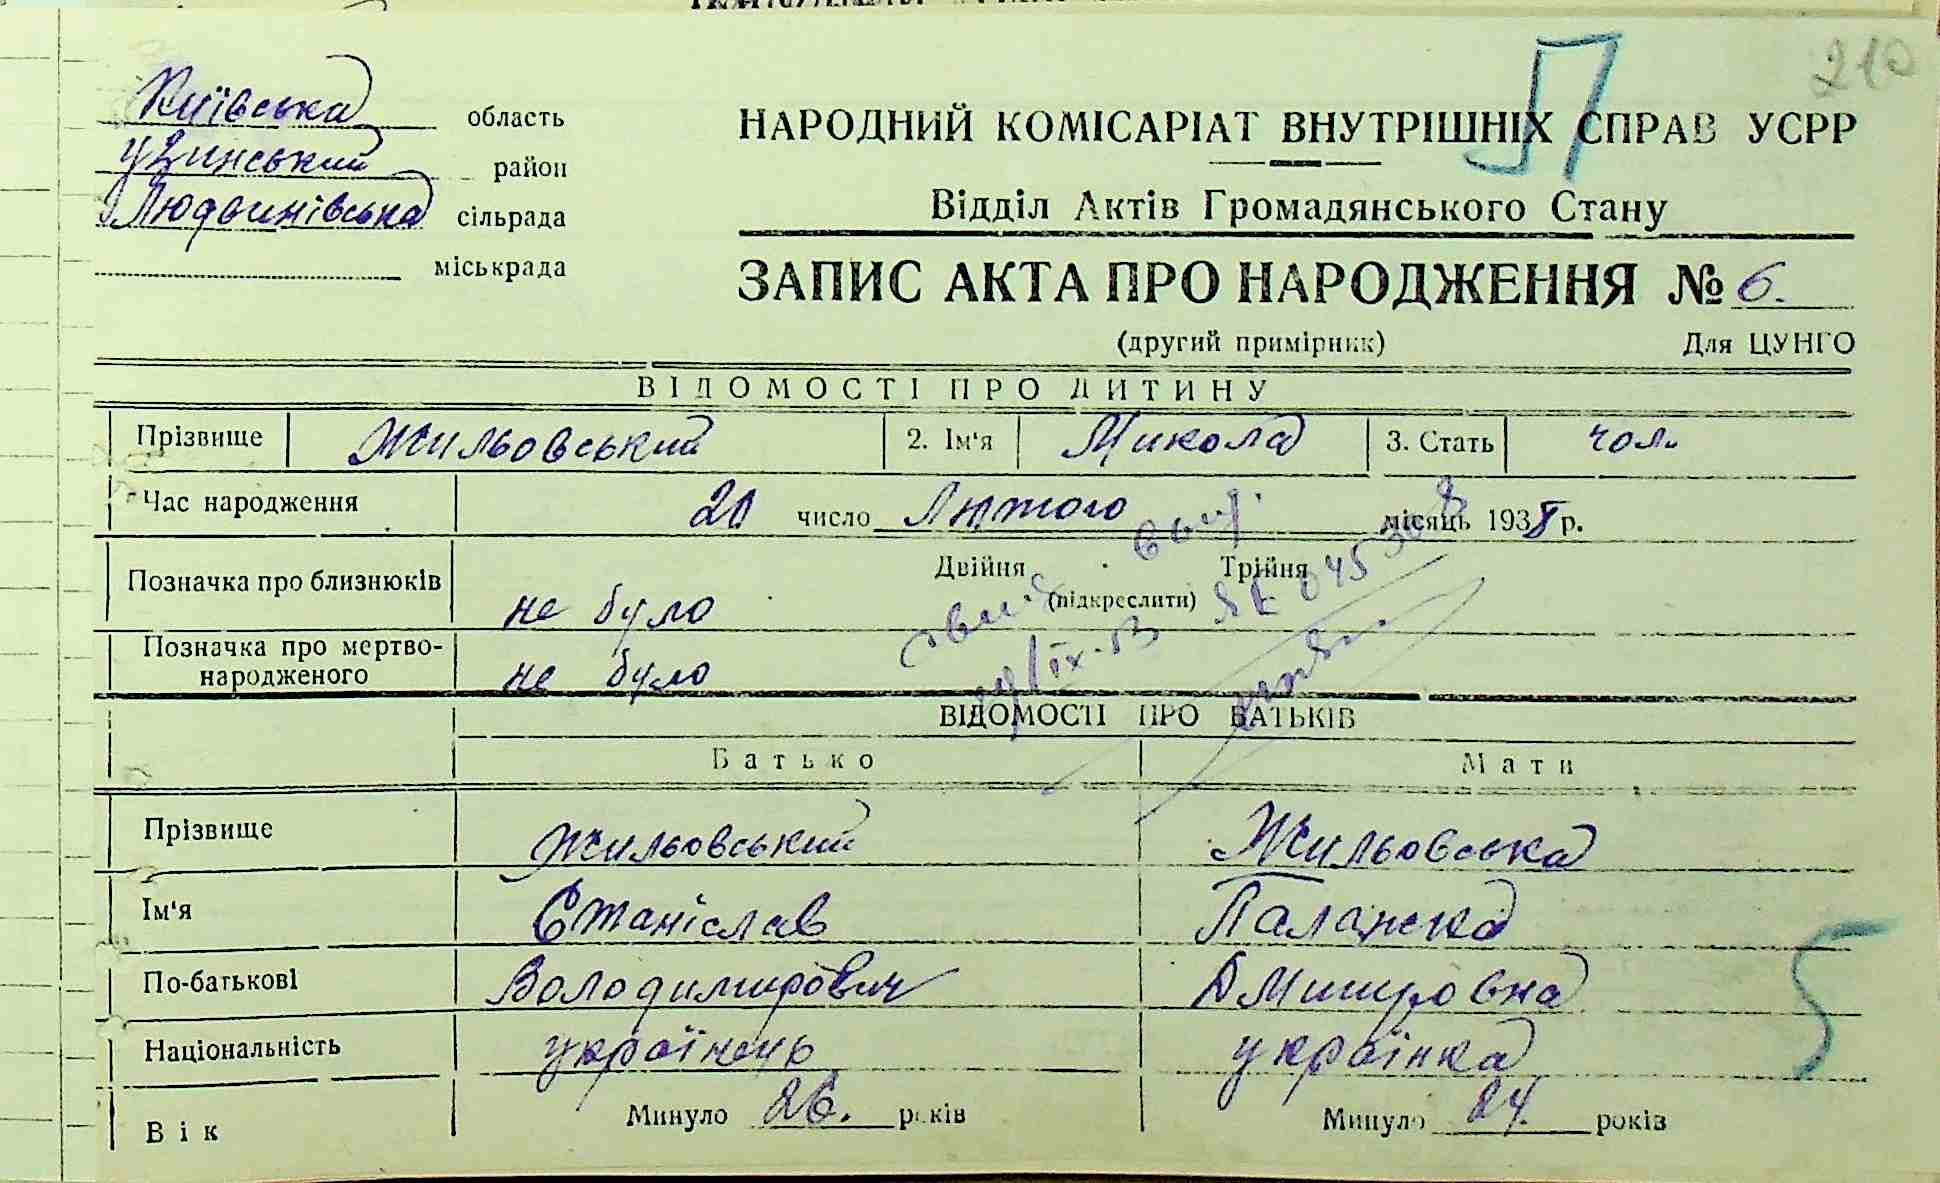 210
Київська область
Узинський район
Людвинівська сільрада
міськрада
НАРОДНИЙ КОМІСАРІАТ ВНУТРІШНІХ СПРАВ УСРР
Відділ Актів Громадянського Стану
ЗАПИС АКТА ПРО НАРОДЖЕННЯ № 6.
(другий примірник) Для ЦУНГО
ВІДОМОСТІ ПРО ДИТИНУ
Прізвище Жильовський 2. Ім'я Микола 3. Стать чол.
Час народження 20 число Лютого місяць 1938 р.
Позначка про близнюків не було Двійня Трійня
(підкреслити)
Позначка про мертво-
народженого не було
ВІДОМОСТІ ПРО БАТЬКІВ
Батько Мати
Прізвище Жильовський Жильовська
Ім'я Станіслав Палажка
По-батькові Володимирович Дмитровна
Національність українець українка
5
Вік Минуло 26. років Минуло 24. років